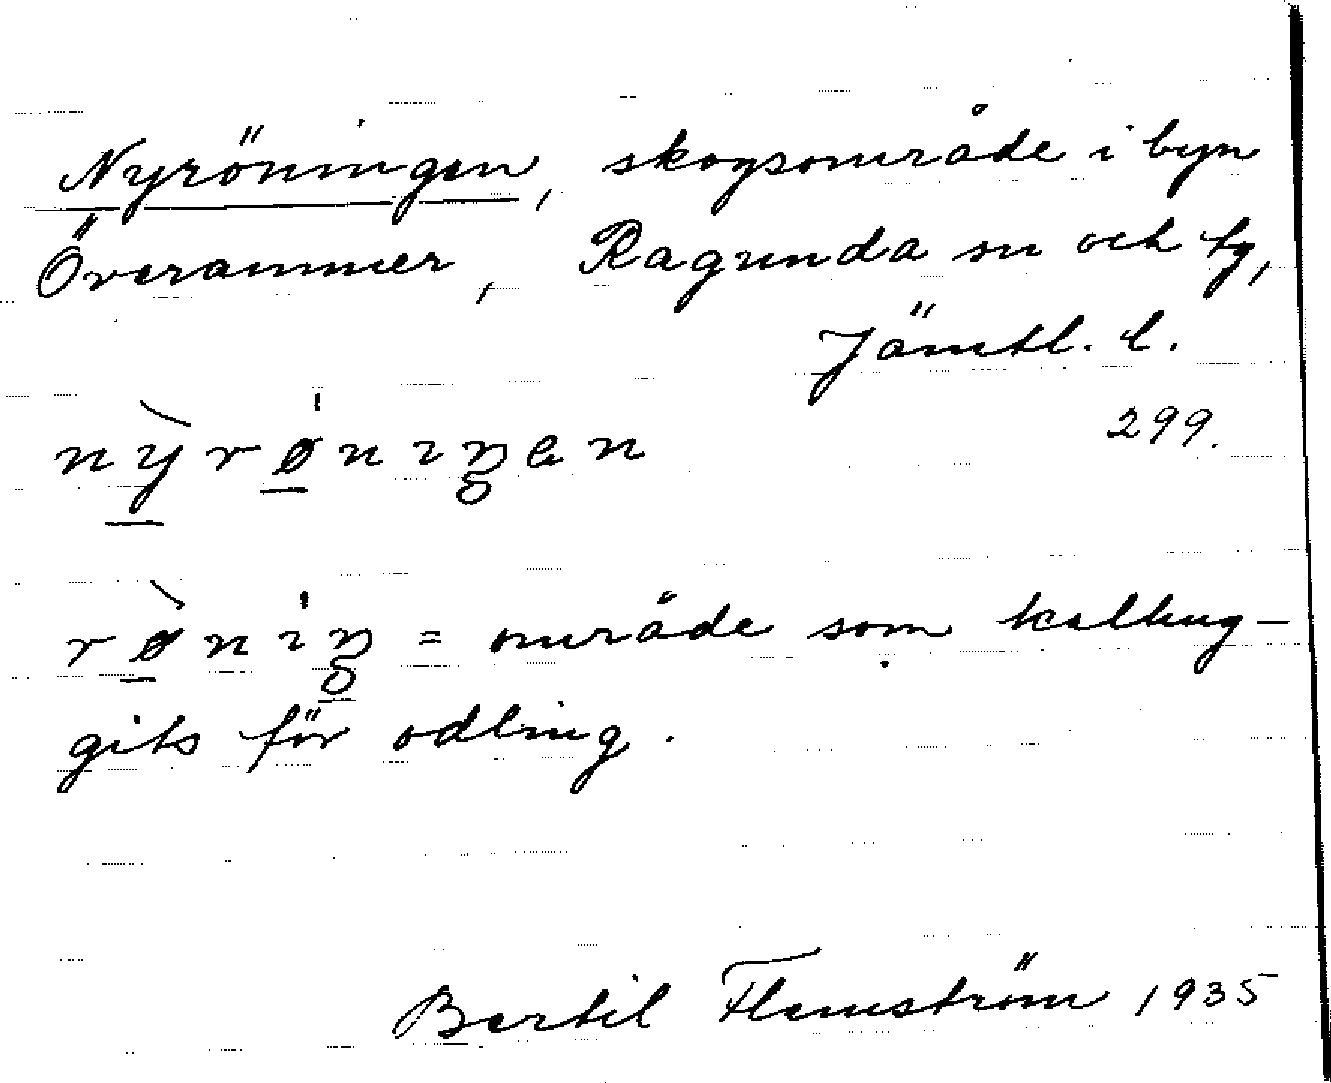 Nyröningen, skogsområde i byn
Överammer, Ragunda sn och tg,
Jämtl. l.
299.
nỳrøniŋen
rø̀niŋ = område som kalhug-
gits för odling.
Bertil Flemström 1935